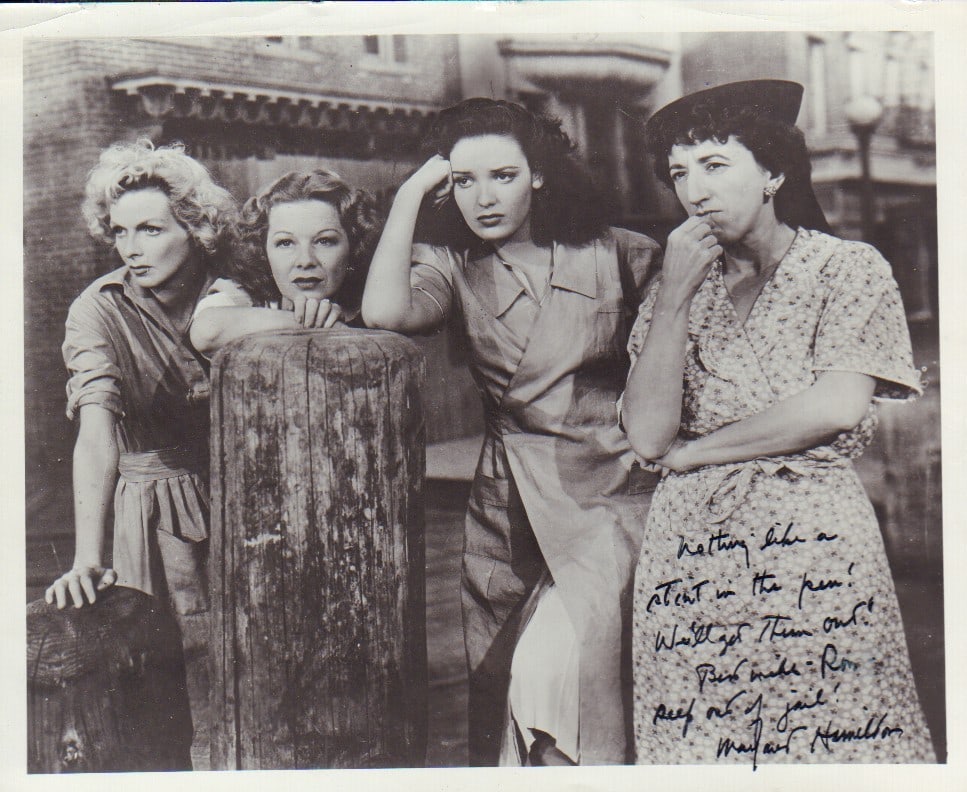 Nothing like a
stint in the pen!
We'll get them out!
Best wishes - Ron
keep out of jail!
Margaret Hamilton